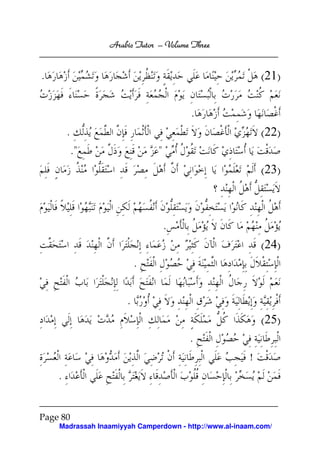 Arabic Tutor – Volume Three
(21) هَلْ تَمُرِّيْنَ حِيْنًامَا عَلَي حَدِيْقَةٍ وَتَنْظُرِيْنَ أَشْجَارَهَا وَتَشُمِّيْنَ أَزْهَارَهَا.
نَعَمْ كُنْتُ مَرَرْتُ بِالْبُسْتَانِ يَوْمَ الْجُمُعَةِ فَرَأَيْتُ شَجَرَةً حَسْنَاءَ فَهَزَزْتُ
أَغْصَانَهَا وَشَمِمْتُ أَزْهَارَهَا.
(22) لَاتَهُزِّيْ الْأَغْصَانَ وَلَا تَطْمَعِيْ فِي الْأَثْمَارِ فَإِنَّ الطَّمَعَ يُذِلُّكِ .
صَدَقْتَ يَا أُسْتَاذِيْ كَانَتْ تَقُوْلُ أُمِّيْ "عَزَّ مَنْ قَنَعَ وَذَلَّ مَنْ طَمَعَ".
(23) أَلَمْ تَعْلَمُوْا يَا إِخْوَانِيْ أَنَّ أَهْلَ مِصْرَ قَدِ اسْتَقَلُّوْا مُنْذُ زَمَانٍ فَلِمَ
لَايَسْتَقِلُّ أَهْلُ الْهِنْدِ ؟
أَهْلُ الْهِنْدِ كَانُوْا يَسْتَخِفُّوْنَ وَيَسْتَقِلُّوْنَ أَنْفُسَهُمْ لَكِنِ الْيَوْمَ تَنَبَّهُوْا قَلِيْلًا فَالْيَوْمَ
يُؤَمَّلُ مِنْهُمْ مَا كَانَ لَا يُؤَمَّلُ بِالْأَمْسِ.
(24) قَدِ اعْتَرَفَ الْآنَ كَثِيْرٌ مِنْ زُعَمَاءِ إِنْجِلْتَرَا أَنَّ الْهِنْدَ قَدِ اسْتَحَقَّتِ
الْإِسْتِقْلَالَ بِإِمْدَادِهَا الثَّمِيْنَةِ فِي حُصُوْلِ الْفَتْحِ .
نَعَمْ لَوْلَا رِجَالُ الْهِنْدِ وَأَسْبَابُهَا لَمَا انْفَتَحَ أَبَدًا لِإِنْجِلْتَرَا بَابُ الْفَتْحِ فِيْ
أَفْرِيْقِيَّةِ وَإِيْطَالِيَةَ وَفِيْ شَرْقِ الْهِنْدِ وَلَا فِيْ أُوْرُبَّا .
(25) وَهَكَذَا كُلُّ مَمْلَكَةٍ مِنْ مَمَالِكِ الْإِسْلَامِ مُدَّتْ يَدَهَا إِلَي إِمْدَادِ
الْبِرِطَانِيَةِ فِي حُصُوْلِ الْفَتْحِ .
صَدَقْتَ ! فَيَجِبُ عَلَي الْبِرِطَانِيَةِ أَنْ تُرْضِيَ الَّذِيْنَ أَمَدُّوْهَا فِيْ سَاعَةِ الْعُسْرَةِ
فَمَنْ لَمْ يُسَخِّرْ بِالْإِحْسَانِ قُلُوْبَ الْأَصْدِقَاءِ لَايَغْتَرَّ بِالْفَتْحِ عَلَي الْأَعْدَاءِ .
Page 80
Madrassah Inaamiyyah Camperdown - http://www.al-inaam.com/